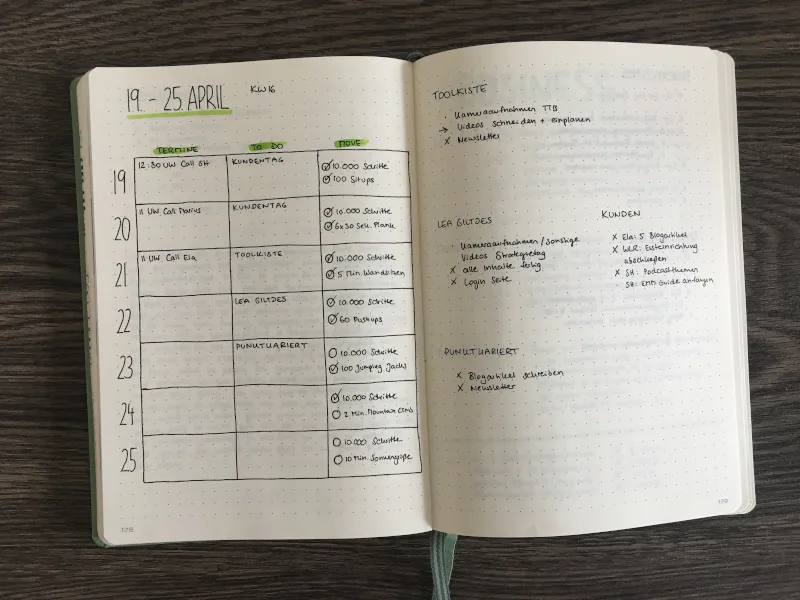 19. - 25. APRIL
KW16
TERMINE
TO DO
MOVE
19
12:30 UW Call SH
KUNDENTAG
10.000 Schritte
100 Situps
20
11 UW Call Darius
KUNDENTAG
10.000 Schritte
6x30 Sek. Plank
21
11 UW Call Ela
TOOLKISTE
10.000 Schritte
5 Min. Wandsitzen
22
LEA GILTJES
10.000 Schritte
60 Pushups
23
PUNKTKARIERT
10.000 Schritte
100 Jumping Jacks
24
10.000 Schritte
2 Min. Mountain
25
10.000 Schritte
10 Min. Sonnengrüße
178
TOOLKISTE
· Kameraaufnahmen TTB
→ Videos schneiden + einplanen
X Newsletter
LEA GILTJES
· Kameraaufnahmen / sonstige
Videos Strategietag
X alle Inhalte fertig
X Login Seite
KUNDEN
X Ela: 5 Blogartikel
X WLR: Ersteinrichtung
abschließen
X SH: Podcastthemen
· SH: Guide anfangen
PUNKTKARIERT
X Blogartikel schreiben
X Newsletter
179